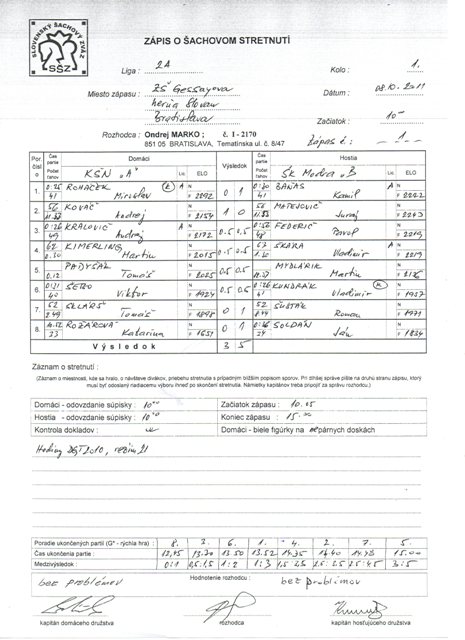 SLOVENSKÝ ŠACHOVÝ ZVÄZ
SŠZ
ZÁPIS O ŠACHOVOM STRETNUTÍ
Liga : 2A Kolo : 1.
Miesto zápasu : ZŠ Gessayova Dátum : 08.10.2011
Bratislava Začiatok : 10
Rozhodca : Ondrej MARKO ; č. I - 2170 Zápas č.: 1
851 05 BRATISLAVA, Tematínska ul. č. 8/47
Por. číslo Čas partie Domáci Výsledok Čas partie Hostia
Počet ťahov KŠN "A" Lic. ELO Počet ťahov ŠK Modra "B" Lic. ELO
1. 0:26 ROHÁČEK K A N 0 1 0:20 BAŇAS A N
41 Miroslav F 2292 41 Kamil F 2222
2. 56 KOVÁČ N 1 0 56 MATEJOVIČ N
Andrej F 2154 Juraj F 2243
3. 0:26 KRALOVIČ A N 0.5 0.5 FEDERIČ N
49 Andrej F 2172 Pavol F 2219
4. 62 KIMERLING N 0.5 0.5 67 SKARA A N
0.30 Martin F 2015 Vladimír F 2219
5. PADYŠÁK N 0.5 0.5 MYDLÁRIK N
Tomáš F 2025 Martin F
6. 0:21 ŠERO N 0.5 0.5 0:26 KUNDRÁK K N
40 Viktor F 1924 40 Vladimír F 1957
7. 52 SKLÁRŠ N 0 1 52 ŠUSTÁK N
2.49 Tomáš F 1898 Roman F 1971
8. ROŽÁROVÁ N 0 1 SOLDÁN N
33 Katarína F 1651 33 Ján F 1834
V ý s l e d o k 3 5
Záznam o stretnutí :
(Záznam o miestnosti, kde sa hralo, o návšteve divákov, priebehu stretnutia s prípadným bližším popisom sporov. Pri dlhšej správe píšte na druhú stranu zápisu, ktorý
musí byť odoslaný riadiacemu výboru ihneď po skončení stretnutia. Námietky kapitánov treba pripojiť za správu rozhodcu.)
Domáci - odovzdanie súpisky : 10 Začiatok zápasu : 10.05
Hostia - odovzdanie súpisky : 10 Koniec zápasu : 15.00
Kontrola dokladov : Domáci - biele figúrky na nepárnych doskách
Hodiny DGT 2010, režim 21
Poradie ukončených partií (G* - rýchla hra) : 8. 3. 6. 1. 4. 2. 7. 5.
Čas ukončenia partie : 12.45 13.20 13.50 13.52 14.35 14.40 14.43 15.00
Medzivýsledok : 0:1 0.5:1.5 1:2 1:3 1.5:3.5 2.5:3.5 2.5:4.5 3:5
bez problémov Hodnotenie rozhodcu : bez problémov
kapitán domáceho družstva rozhodca kapitán hosťujúceho družstva